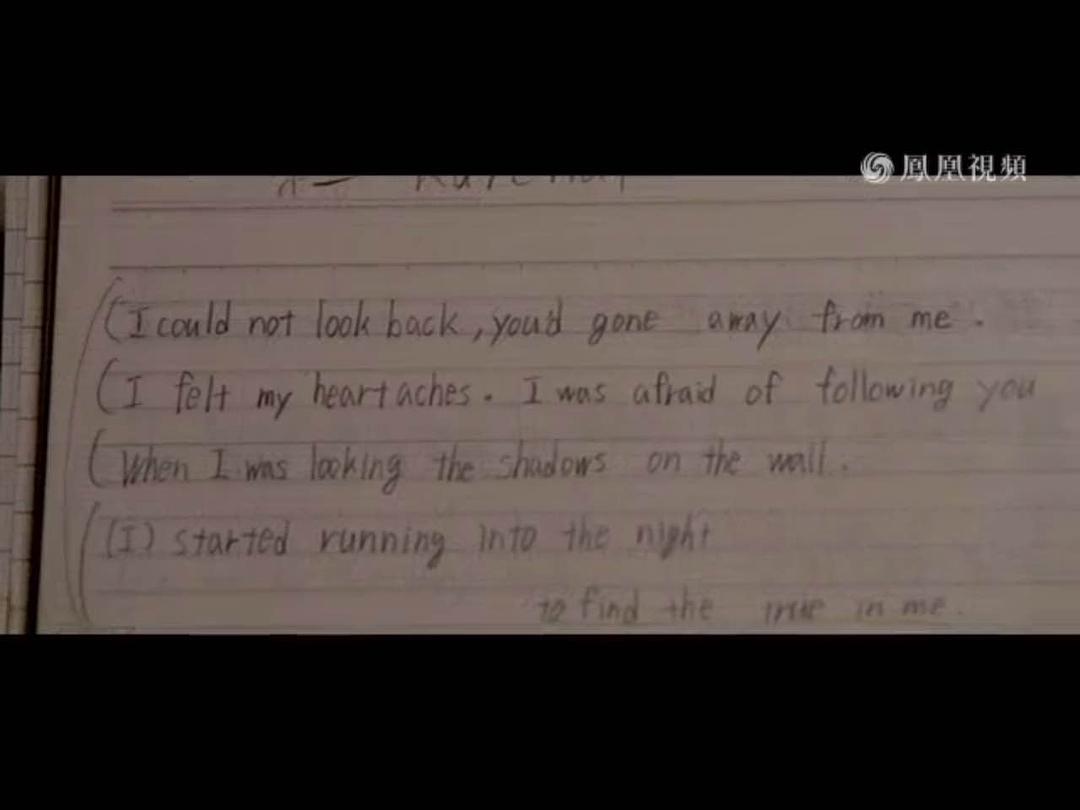 鳳凰視頻
(I could not look back, you'd gone away from me.
(I felt my heart aches. I was afraid of following you
(When I was looking the shadows on the wall.
((I) started running into the night
to find the in me.